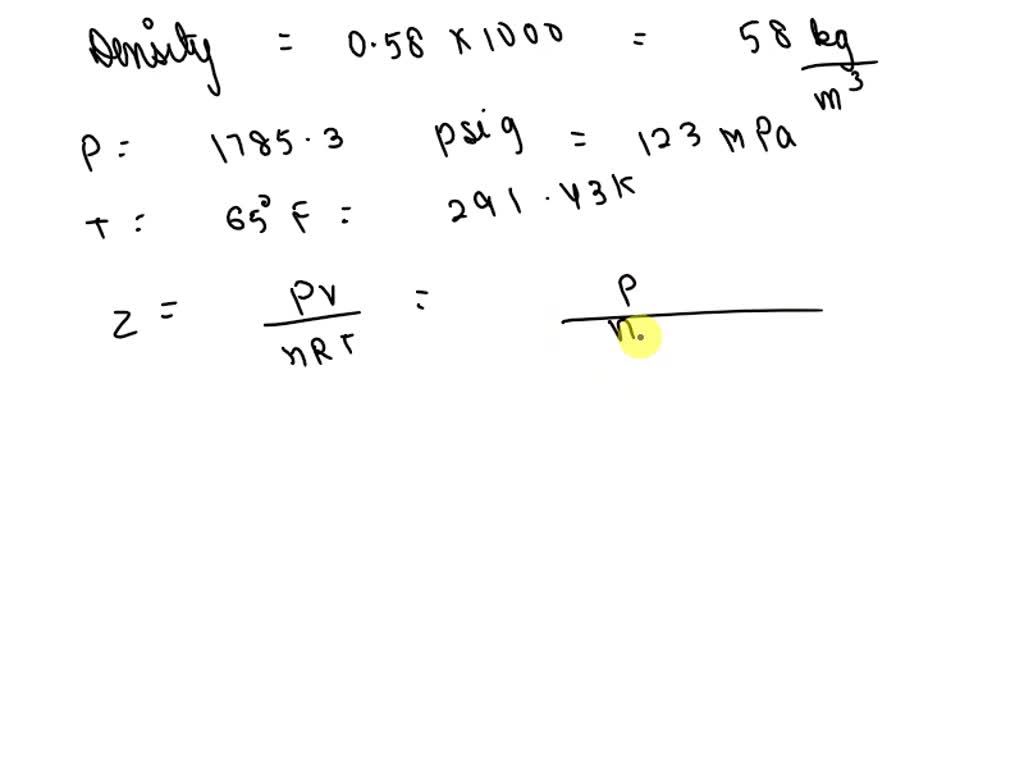 Density = 0.58 × 1000 = 58 kg/m³
P = 1785.3 psig = 123 mPa
T = 65° F = 291.43K
Z = PV/nRT = P/n.